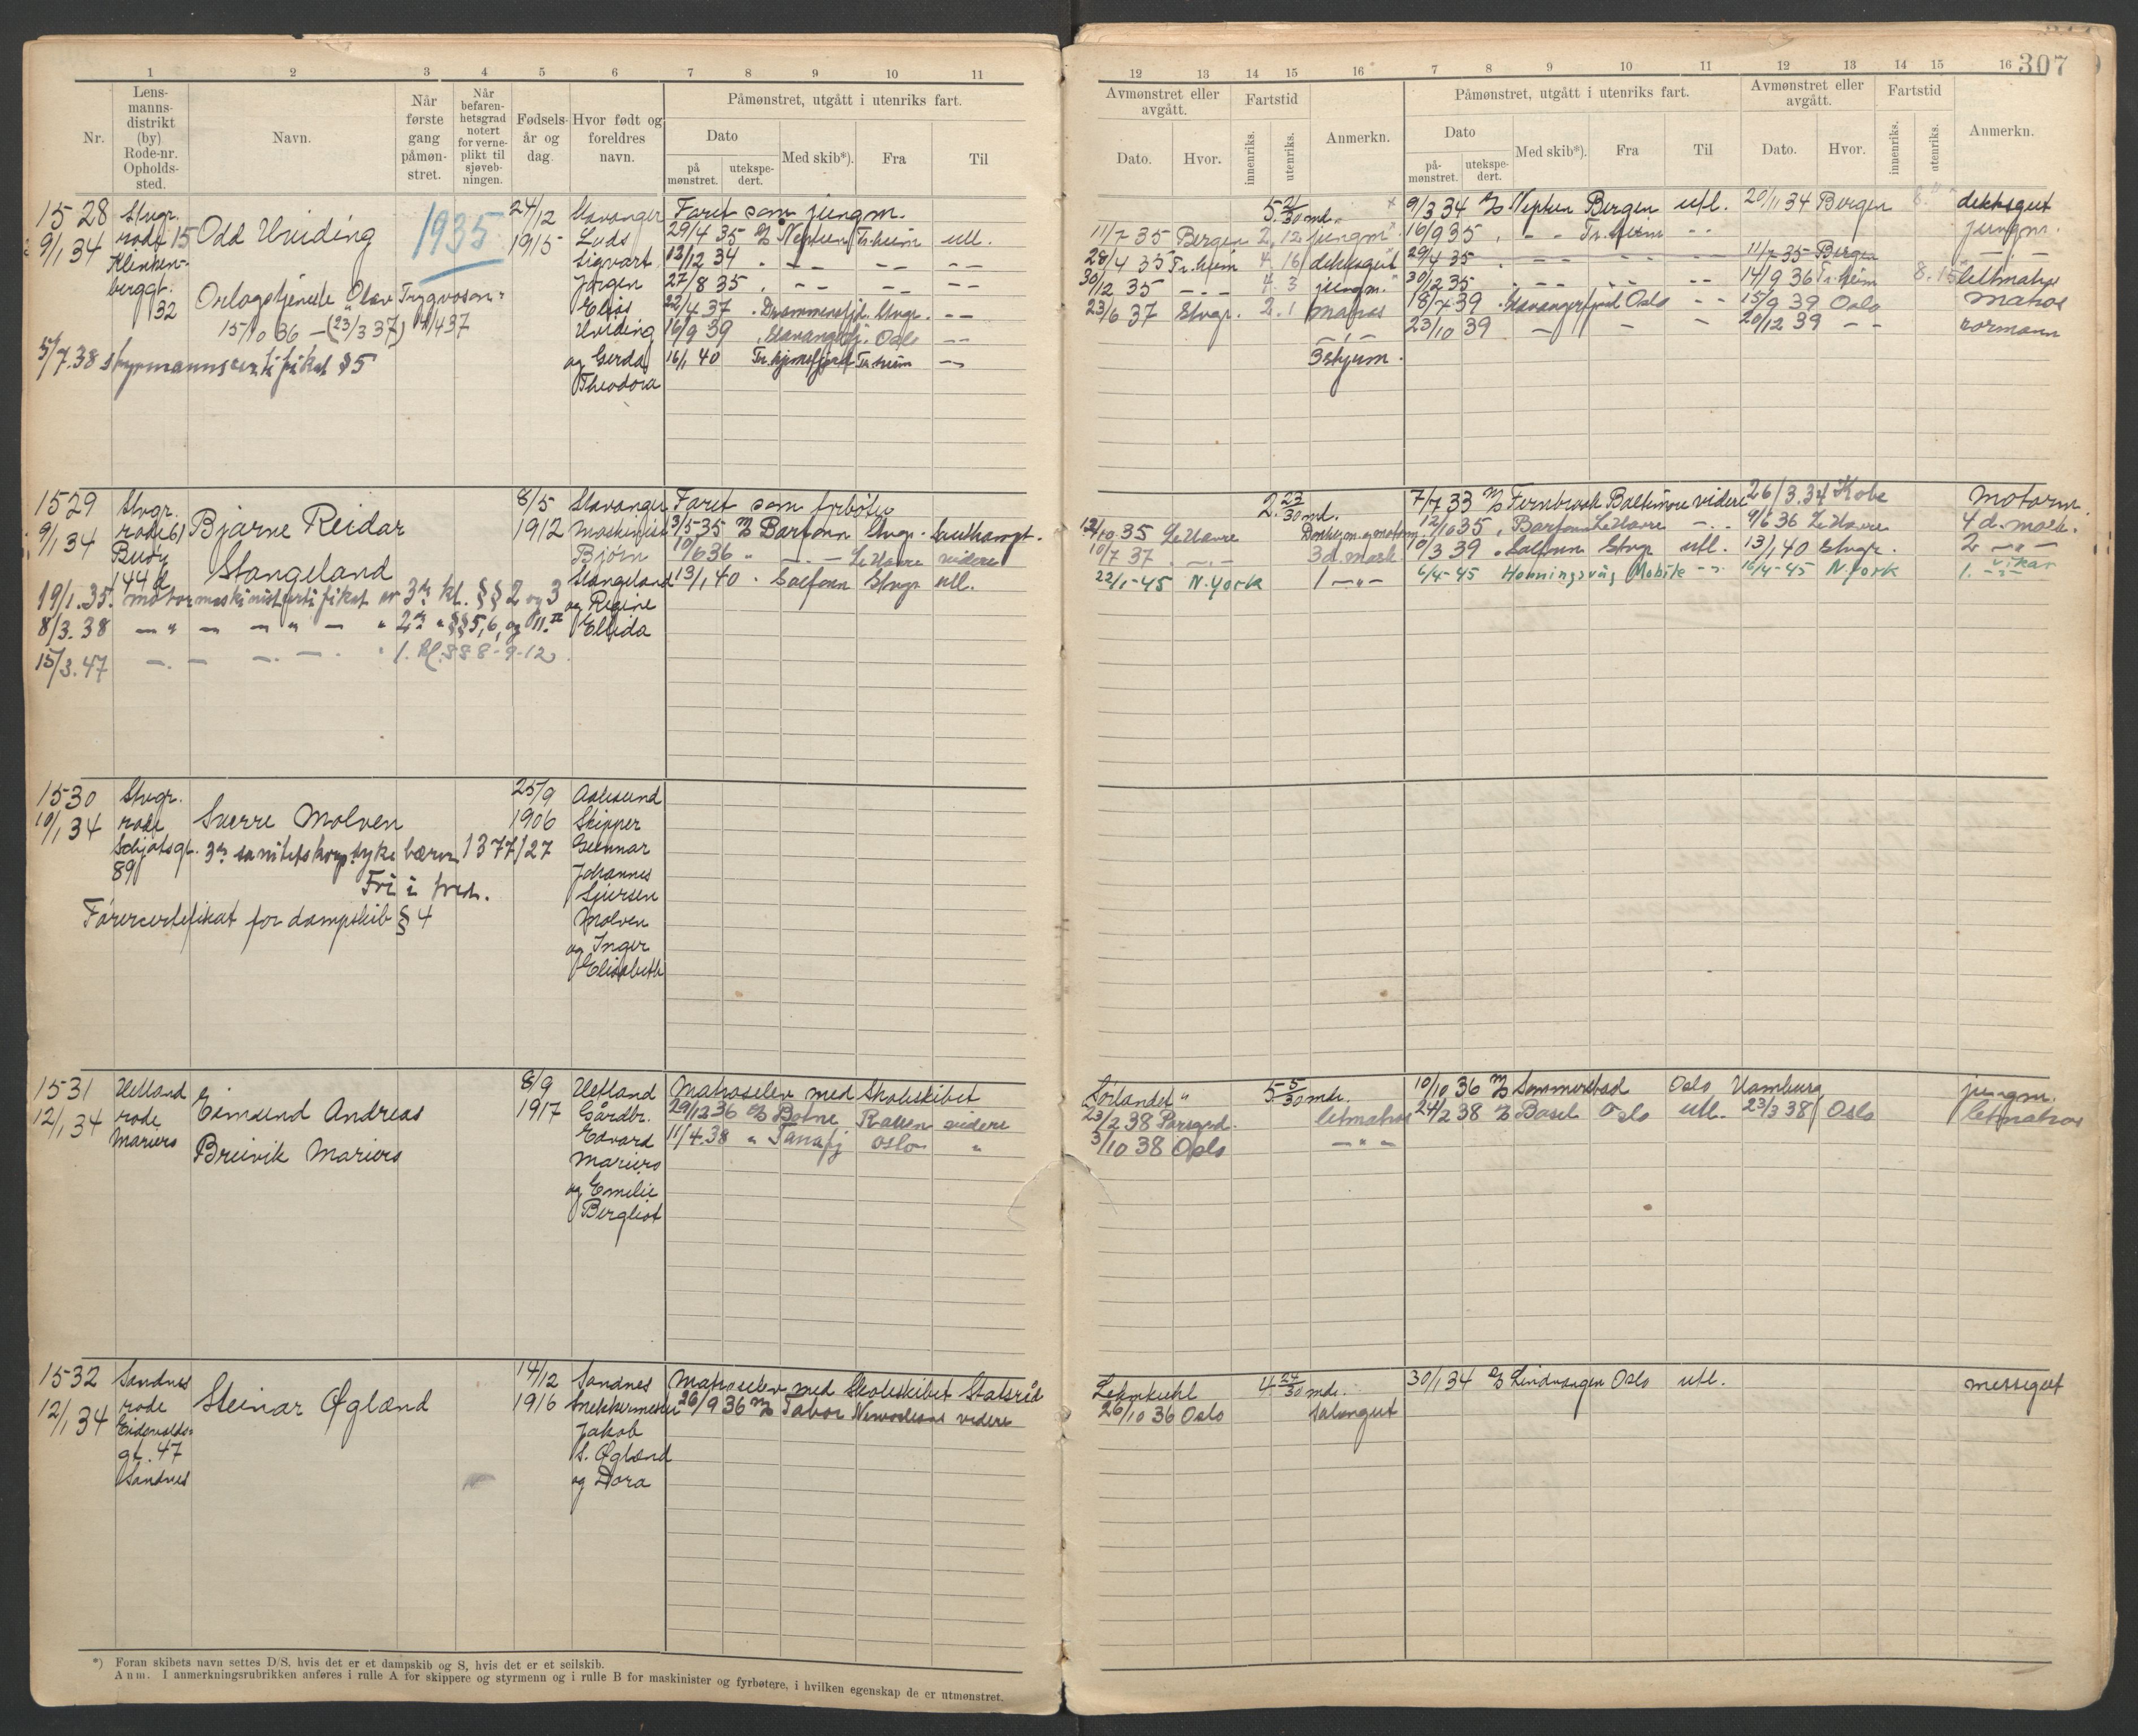 307
1 2 3 4 5 6 7 8 9 10 11
12 13 14 15 16 7 8 9 10 11 12 13 14 15 16
Nr.
Lens-
manns-
distrikt
(by)
Rode-nr.
Opholds-
sted.
Navn.
Når
første
gang
påmøn-
stret.
Når
befaren-
hetsgrad
notert
for verne-
plikt til
sjøveb-
ningen.
Fødsels-
år og
dag.
Hvor født og
foreldres
navn.
Påmønstret, utgått i utenriks fart.
Dato
på
mønstret.
utekspe-
dert.
Med skib*).
Fra
Til
Avmønstret eller
avgått.
Dato.
Hvor.
Fartstid
innenriks.
utenriks.
Anmerkn.
Påmønstret, utgått i utenriks fart.
Dato
på-
mønstret.
utekspe-
dert.
Med skib*).
Fra
Til
Avmønstret eller
avgått.
Dato.
Hvor.
Fartstid
innenriks.
utenriks.
Anmerkn.
1528
9/1 34
Stvgr.
rode 15
Klinken-
berggt.
32
Odd Hviding
1935
24/12
1915
Stavanger
Lods
Sigvart
Jørgen
Elias
Hviding
og Gerda
Theodora
Orlogstjeneste "Olav Trygvason"
15/10 36 – (23/3 37) 14/4 37
5/7.38 styrmannscertifikat § 5
Faret som jungm. 5 21/30 md.
29/4 35 D/S Neptun Tr.heim utl. 11/7 35 Bergen 2,12 jungm.
12/12 34 . – – – – – – 28/4 35 Tr.heim 4,16 dekksgut
27/8 35 . – – – – – – 30/12 35 – . – 4.3 jungm.
22/4.37 . Drammensfj. Stvgr. – – 23/6 37 Stvgr. 2.1 matros
16/9 39 . Stavangerfj. Oslo – – – . –
16/1 40 Tr.hjemsfjord Tr.heim – 3 styrm.
9/3 34 D/S Neptun Bergen utl. 20/11 34 Bergen dekksgut
16/9 35 . – – Tr.heim – – jungm.
29/4 35 . – – – – – – 11/7 35 Bergen – –
30/12 35 . – – – – – – 14/9 36 Tr.heim 8.15 lettmatros
18/7 39 . Stavangerfjord Oslo – – 15/9 39 Oslo matros
23/10 39 – – – 20/12 39 – – tørmann
1529
9/1 34
Stvgr.
rode 61
Budy
144 d
Bjarne Reidar
Stangeland
8/5
1912
Stavanger
Maskinist
Bjørn
Stangeland
og Regine
Elida
19/1.35. motormaskinistsertifikat av 3m kl. §§ 2 og 3
8/3.38 – " – – " – " 2m " §§ 5, 6, og 11.II
15/3.47 – . – – . – . " 1. kl. §§ 8-9-12
Faret som fyrbøter 2. 23/30 md.
3/5-35 M/S Barfonn Stvgr. Southampt. 12/10 35 Le Havre Donkeym. og motorm.
10/6 36 " – . – Le Havre videre 10/7 37 . – . – 3d. mask
13/1 40 . Solfonn Stvgr. utl. 22/1-45 N. York 1 – " –
7/7 33 M/S Fernbrook Baltimore videre 26/3.34 Kobe Motorm.
12/10 35 . Barfonn Le Havre – . – 9/6 36 Le Havre 4 d. mask.
10/3 39 . Solfonn Stvgr utl. 13/1 40 Stvgr. 2 – " –
6/4-45 Honningsvåg Mobile – " – 16/4-45 N. York 1. – " – vikar
1530
10/1 34
Stvgr.
rode
Schjøtsgt.
89
Sverre Molven
25/9
1906
Aalesund
Skipper
Gunnar
Johannes
Sjursen
Molven
og Inger
Elisabeth
3m sanitetskorps sykebærer 1377/27
Fri i fred.
Førercertifikat for dampskib § 4
1531
12/1 34
Hetland
rode
Mariero
Edmund Andreas
Breivik Mariero
8/9
1917
Hetland
Gårdbr.
Edvard
Mariero
og Emilie
Bergliot
Matroselev med Skoleskibet "Sørlandet" 5 5/30 mdr.
29/12 36 D/S Botne Rouen videre 23/2 38 Porsgrd. letmatros
11/4.38 " Tanafj Oslo " 3/10 38 Oslo – " –
10/10 36 M/S Sommerstad Oslo Hamburg jungm.
24/2 38 D/S Basel Oslo utl. 23/3 38 Oslo letmatros
1532
12/1 34
Sandnes
rode
Eidsvolds-
gt. 47
Sandnes
Steinar Øglænd
14/12
1916
Sandnes
Snekkermester
Jakob
S. Øglænd
og Dora
Matroselev med Skoleskibet Statsråd Lehmkuhl 4 24/30 mdr.
26/9 36 M/S Tabor Neworleans videre 26/10 36 Oslo Salongut
30/1 34 D/S Lindvangen Oslo utl. messegut
*) Foran skibets navn settes D/S. hvis det er et dampskib og S, hvis det er et seilskib.
Anm. I anmerkningsrubrikken anføres i rulle A for skippere og styrmenn og i rulle B for maskinister og fyrbøtere, i hvilken egenskap de er utmønstret.